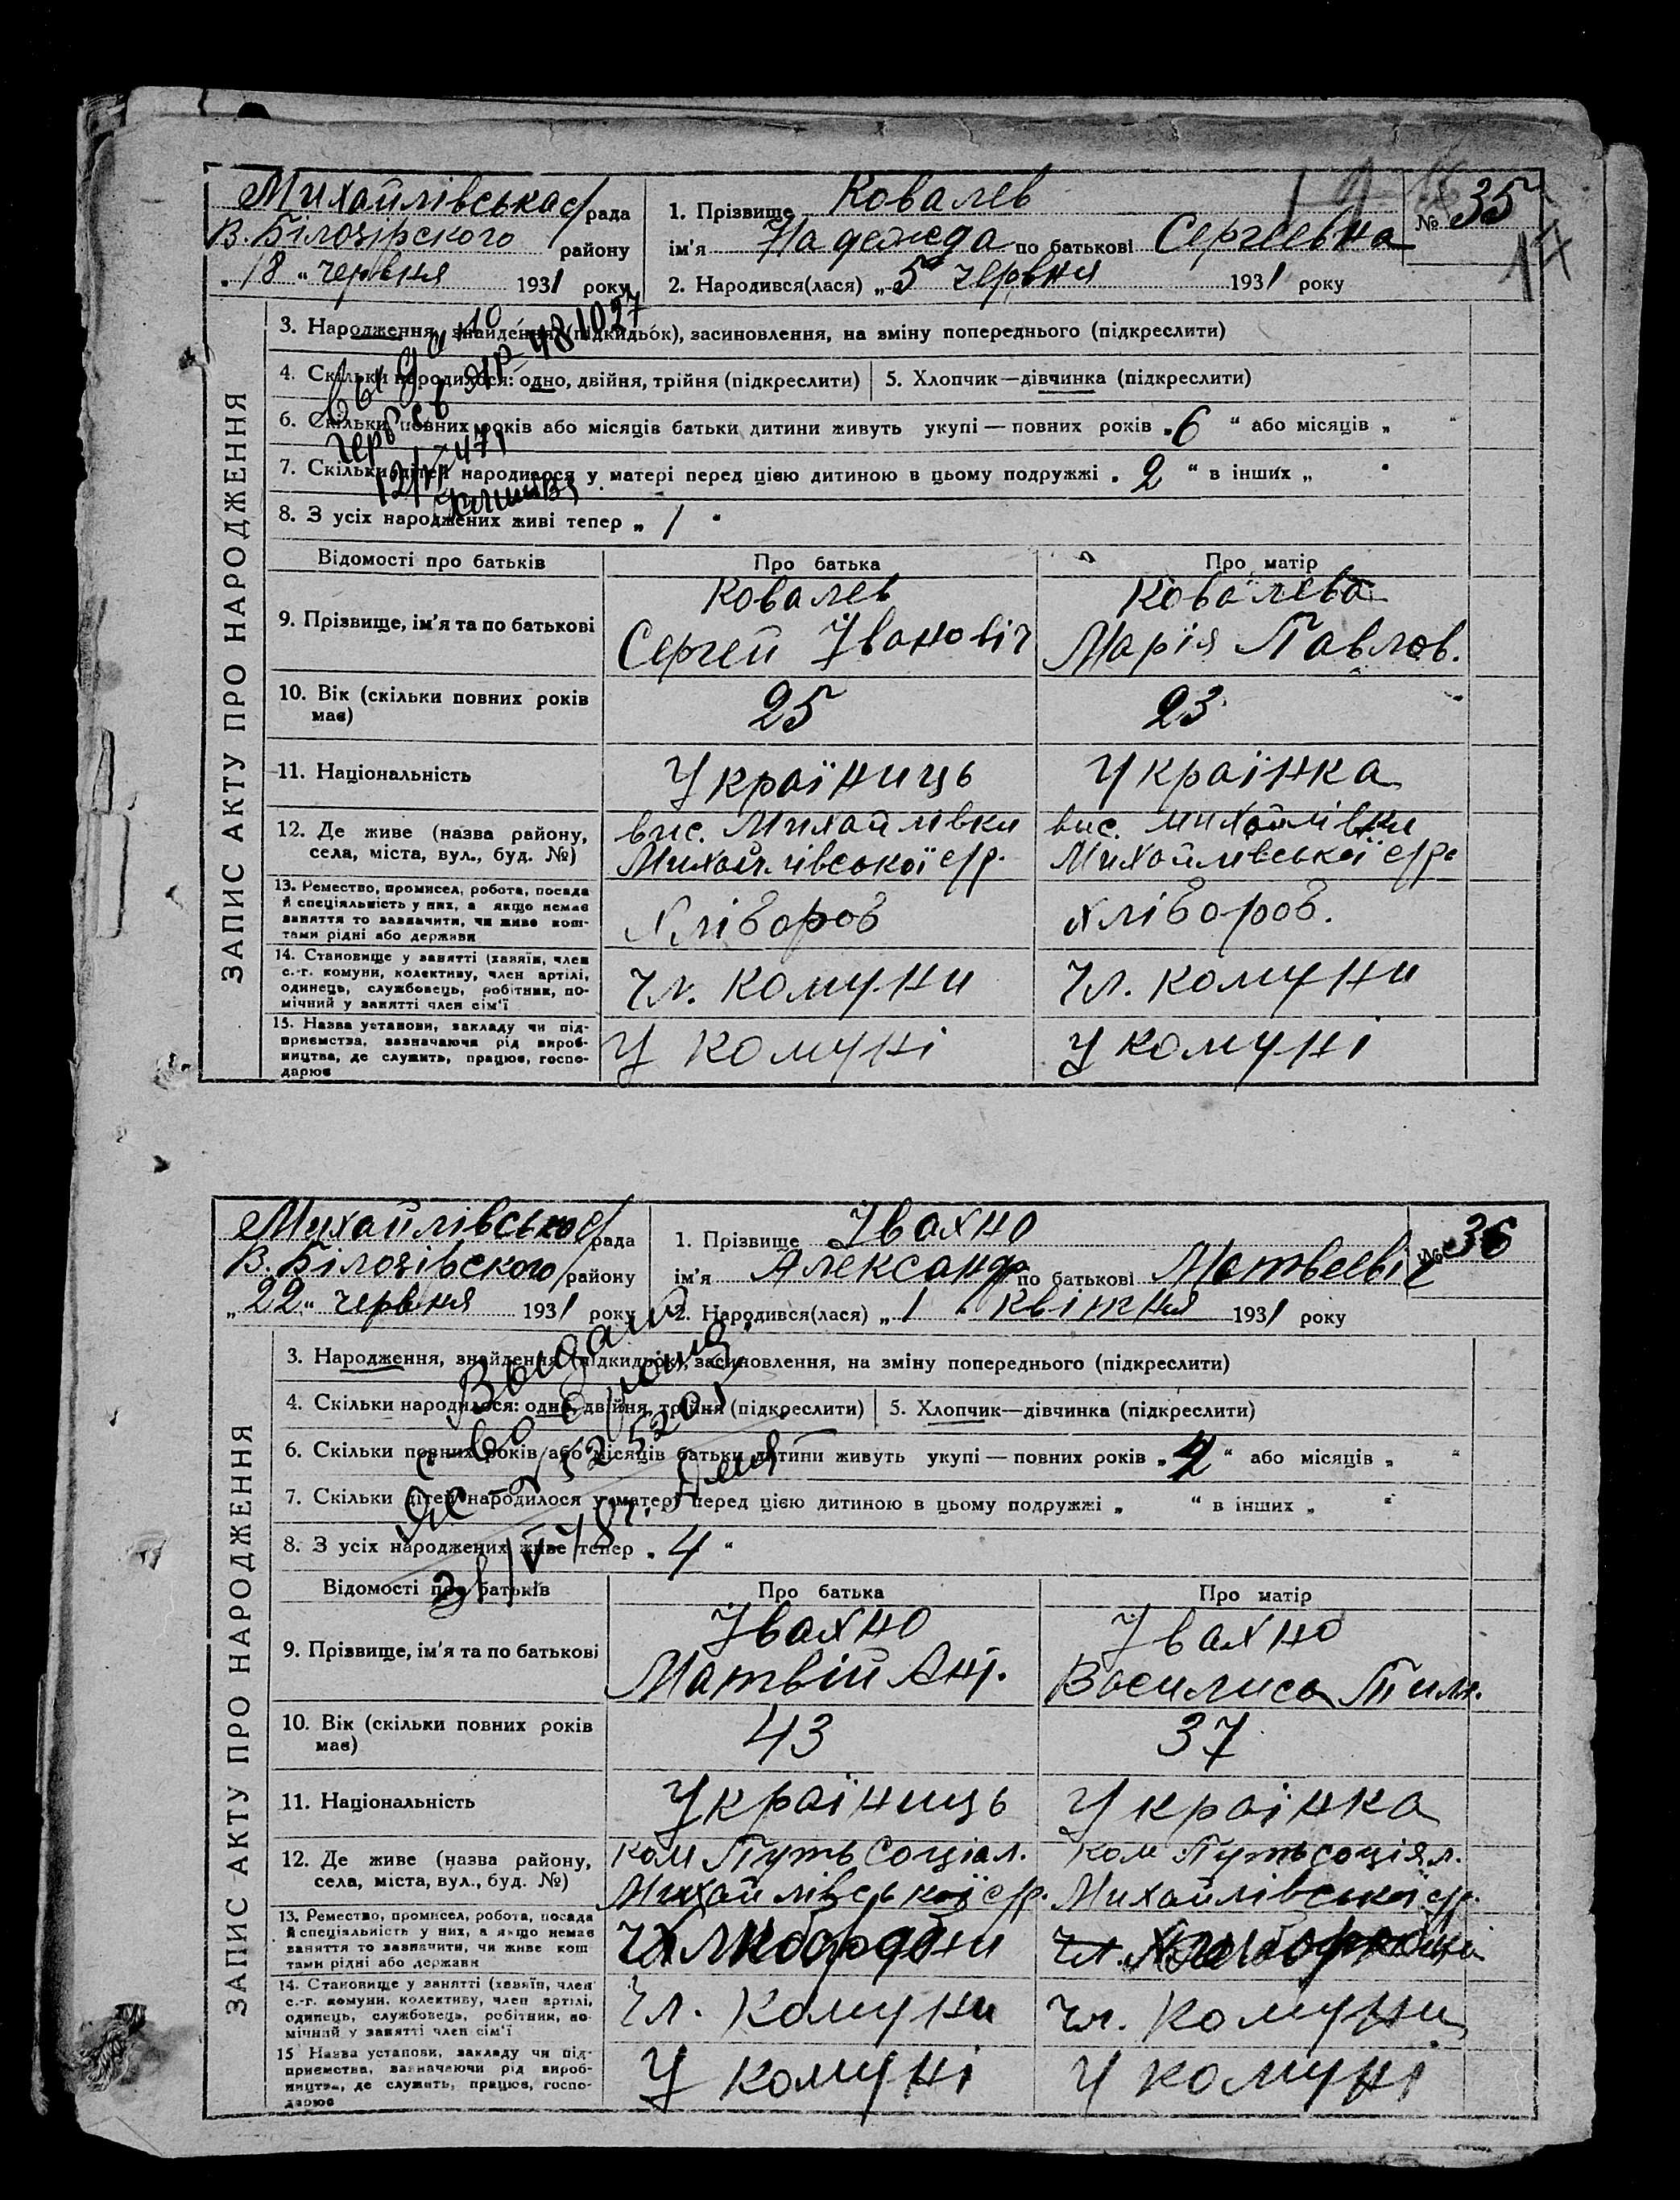 Михайлівська с/рада
В. Білозірского району
"18" червня 1931 року
1. Прізвище Ковалев
ім'я Надежда по батькові Сергеевна
2. Народився(лася) "5 червня 1931 року
№ 35
17
ЗАПИС АКТУ ПРО НАРОДЖЕННЯ
3. Народження, знайдення (підкидьок), засиновлення, на зміну попереднього (підкреслити)
4. Скільки народилося: одно, двійня, трійня (підкреслити)
5. Хлопчик—дівчинка (підкреслити)
6. Скільки повних років або місяців батьки дитини живуть укупі — повних років "6" або місяців " "
7. Скільки дітей народилося у матері перед цією дитиною в цьому подружжі "2" в інших " "
8. З усіх народжених живі тепер "1"
481027
Відомості про батьків
Про батька
Про матір
9. Прізвище, ім'я та по батькові
Ковалев
Сергей Івановіч
Ковалева
Марія Павлов.
10. Вік (скільки повних років
має)
25
23
11. Національність
Україниць
Українка
12. Де живе (назва району,
села, міста, вул., буд. №)
вис. Михайлівки
Михайлівської с/р.
вис. Михайлівки
Михайлівської с/р.
13. Ремество, промисел, робота, посада
й спеціяльність у них, а якщо немає
заняття то зазначити, чи живе кош-
тами рідні або держави
Хлібороб
Хлібороб.
14. Становище у занятті (хазяїн, член
с.-г. комуни, колективу, член артілі,
одинець, службовець, робітник, по-
мічний у занятті член сім'ї
Чл. комуни
Чл. комуни
15. Назва установи, закладу чи під-
приємства, зазначаючи рід вироб-
ництва, де служить, працює, госпо-
дарює
У комуні
У комуні
Михайлівська с/рада
В. Білозівского району
"22" червня 1931 року
1. Прізвище Івахно
ім'я Александр по батькові Матвеевіч
2. Народився(лася) "1" квітня 1931 року
№ 36
ЗАПИС АКТУ ПРО НАРОДЖЕННЯ
3. Народження, знайдення (підкидьок), засиновлення, на зміну попереднього (підкреслити)
4. Скільки народилося: одно, двійня, трійня (підкреслити)
5. Хлопчик—дівчинка (підкреслити)
6. Скільки повних років або місяців батьки дитини живуть укупі — повних років " " або місяців " "
7. Скільки дітей народилося у матері перед цією дитиною в цьому подружжі " " в інших " "
8. З усіх народжених живе тепер "4"
Выдано
Відомості про батьків
Про батька
Про матір
9. Прізвище, ім'я та по батькові
Івахно
Матвій Ант.
Івахно
Василиса Пил.
10. Вік (скільки повних років
має)
43
37
11. Національність
Україниць
Українка
12. Де живе (назва району,
села, міста, вул., буд. №)
ком Путь Соціал.
Михайлівської с/р.
ком Путь соціял.
Михайлівської с/р.
13. Ремество, промисел, робота, посада
й спеціяльність у них, а якщо немає
заняття то зазначити, чи живе кош
тами рідні або держави
14. Становище у занятті (хазяїн, член
с.-г. комуни, колективу, член артілі,
одинець, службовець, робітник, по
мічний у занятті член сім'ї
Чл. комуни
Чл. комуни
15 Назва установи, закладу чи під-
приємства, зазначаючи рід вироб-
ництва, де служить, працює, госпо-
дарює
У комуні
У комуні